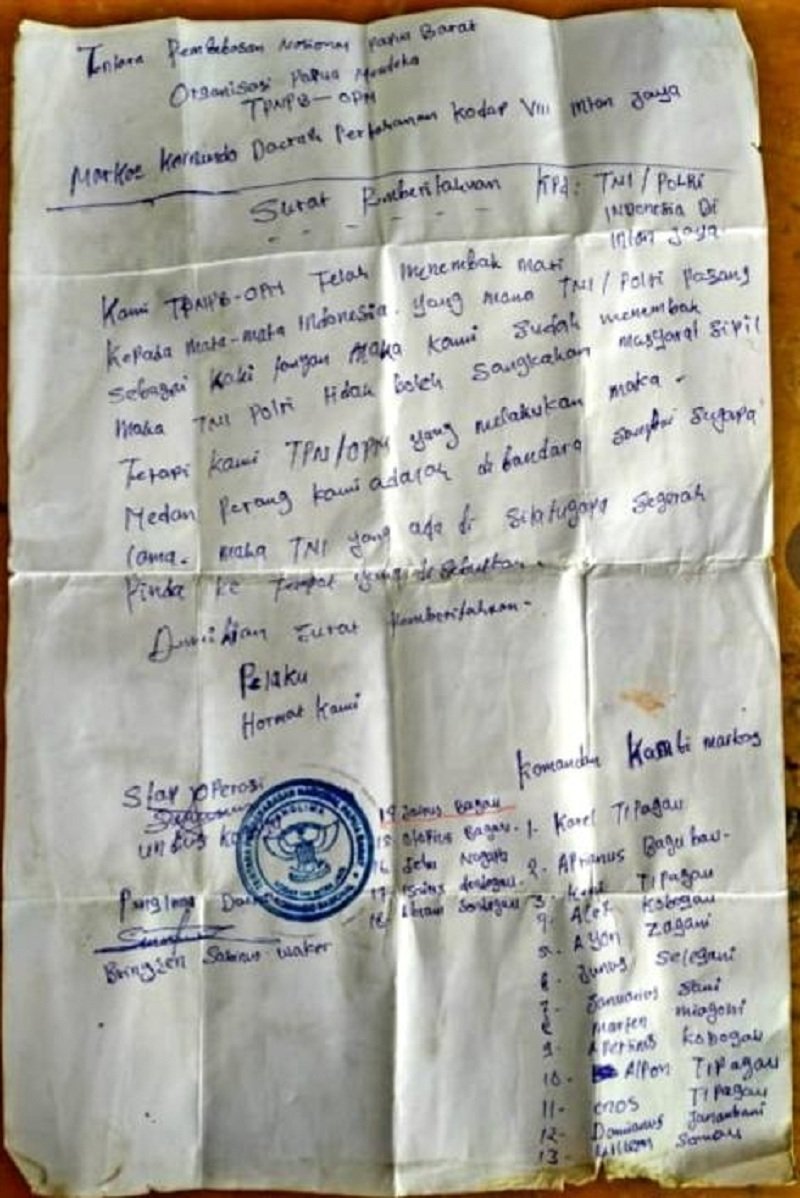 Tentara Pembebasan Nasional Papua Barat
Organisasi Papua Merdeka
TPNPB-OPM
Markas Komando Daerah Pertahanan Kodap VIII Intan Jaya
Surat Pemberitahuan Kpd: TNI/POLRI
INDONESIA Di
Intan Jaya
Kami TPNPB-OPM Telah Menembak Mati
Kepada Mata-Mata Indonesia. yang mana TNI/Polri pasang
sebagai kaki tangan Maka kami sudah menembak
Maka TNI Polri tidak boleh sangkahan masyarat sipil
Tetapi kami TPN/OPM yang melakukan maka -
Medan perang kami adalah di bandara sampai Sugapa
lama. maka TNI yang ada di Segerah
Pinda ke tempat yang di sebutkan.
Demikian Surat Pemberitahuan-
Pelaku
Hormat Kami
Staf Operasi
Undius Ko
Panglima Da
Bringjen Sabinus Waker
Komandan
14 Janus Bagau
15 Bagau-
16
17
18
1. Karel TIPagau
2. Aprianus Bagubau-
3. TIPagau
4. Alex Kobogau
5. Ayon Zagani
6. Junus Selegani
7. Januarius Sani
8 Marten Miagoni
9. Apertinus Kobogau
10- Alpon TIPagau
11- enos TIPagau
12- Damianus Janambani
13- Willem